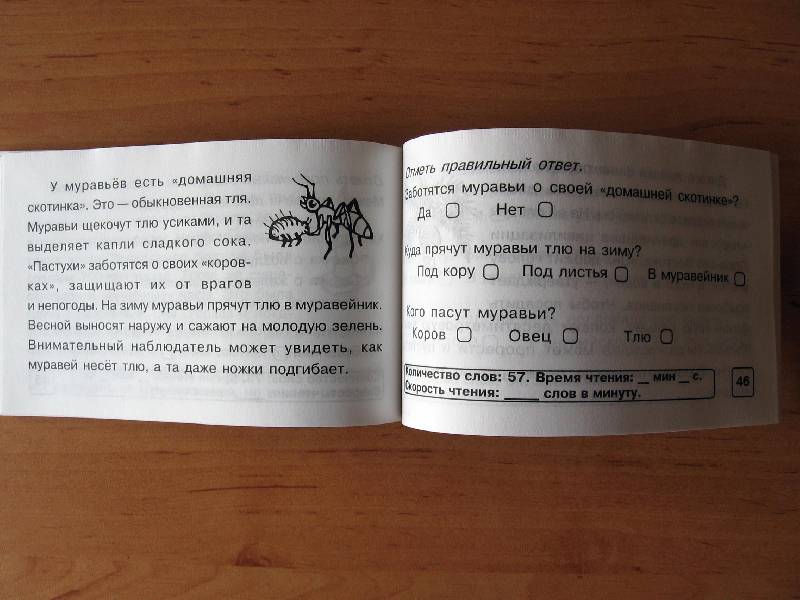 У муравьёв есть «домашняя
скотинка». Это — обыкновенная тля.
Муравьи щекочут тлю усиками, и та
выделяет капли сладкого сока.
«Пастухи» заботятся о своих «коров-
ках», защищают их от врагов
и непогоды. На зиму муравьи прячут тлю в муравейник.
Весной выносят наружу и сажают на молодую зелень.
Внимательный наблюдатель может увидеть, как
муравей несёт тлю, а та даже ножки подгибает.
Отметь правильный ответ.
Заботятся муравьи о своей «домашней скотинке»?
Да Нет
Куда прячут муравьи тлю на зиму?
Под кору Под листья В муравейник
Кого пасут муравьи?
Коров Овец Тлю
Количество слов: 57. Время чтения: _ мин _ с.
Скорость чтения: ____ слов в минуту.
46